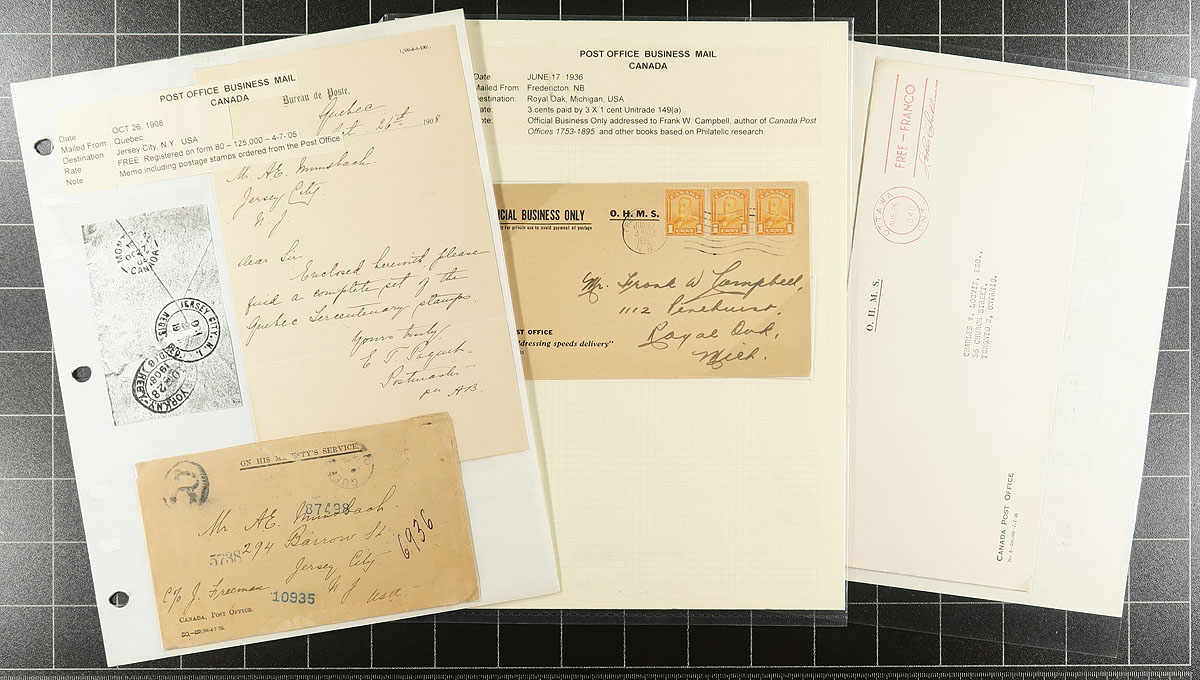 POST OFFICE BUSINESS MAIL
CANADA
Date: OCT 26, 1908
Mailed From: Quebec
Destination: Jersey City, N.Y. USA
Rate FREE Registered on form 80 – 125,000 – 4-7-'05
Note: Memo including postage stamps ordered from the Post Office
Bureau de Poste,
Quebec
Oct. 26th 1908
Mr AE. Munsbach
Jersey City
N J
Dear Sir
Enclosed herewith please
find a complete set of the
Quebec Tercentenary stamps.
Yours truly
E T Paquet
Postmaster
per AB.
JERSEY CITY, N.J.
REG'D
CANADA
1908
ON HIS MAJESTY'S SERVICE.
87498
Mr AE. Munsbach
5738 294 Barrow St.
6936
Jersey City
c/o J. Freeman N J
10935 USA
CANADA, POST OFFICE.
POST OFFICE BUSINESS MAIL
CANADA
Date: JUNE 17 1936
Mailed From: Fredericton, NB
Destination: Royal Oak, Michigan, USA
Rate: 3 cents paid by 3 X 1 cent Unitrade 149(a)
Note: Official Business Only addressed to Frank W. Campbell, author of Canada Post
Offices 1753-1895 and other books based on Philatelic research.
ICIAL BUSINESS ONLY
ty for private use to avoid payment of postage
O. H. M. S.
CANADA CANADA CANADA
1 CENT 1 1 CENT 1 1 CENT 1
Mr. Frank W Campbell,
1112 Pinehurst,
Royal Oak,
Mich.
ST OFFICE
ddressing speeds delivery"
FREE – FRANCO
OTTAWA
ONT.
O. H. M. S.
CHARLES W. LOQVIS, ESQ.,
56 CHURCH STREET,
TORONTO 2, ONTARIO.
CANADA POST OFFICE